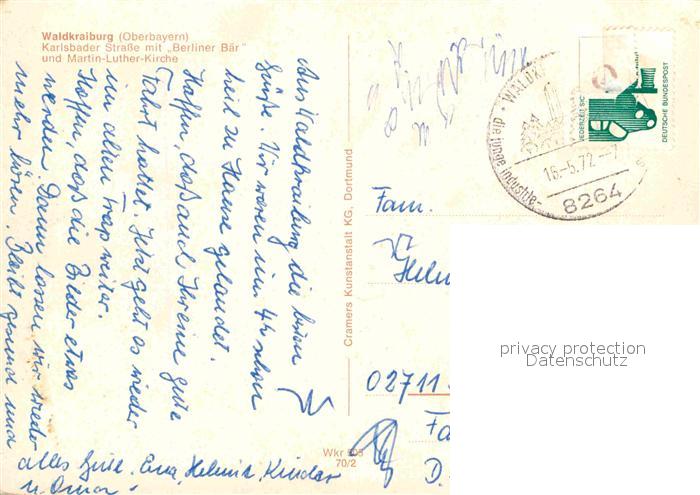 Waldkraiburg (Oberbayern)
Karlsbader Straße mit „Berliner Bär"
und Martin-Luther-Kirche
Aus Waldkraiburg die lieben
Grüße. Wir waren um 4h schon
heil zu Hause gelandet.
Hoffen, daß auch Ihr eine gute
Fahrt hattet. Jetzt geht es wieder
im alten Trap weiter.
Hoffen, daß die Bilder etwas
werden. Dann lassen wir wieder
mehr hören. Bleibt gesund und
alles Gute. Eure Helmut, Kinder
u. Oma.
Cramers Kunstanstalt KG, Dortmund
Wkr
70/2
WALDK
die junge Industrie-
16.-5.72
8264
JEDERZEIT SIC
DEUTSCHE BUNDESPOST
Fam.
Helm
02711
Fa
D.
privacy protection
Datenschutz